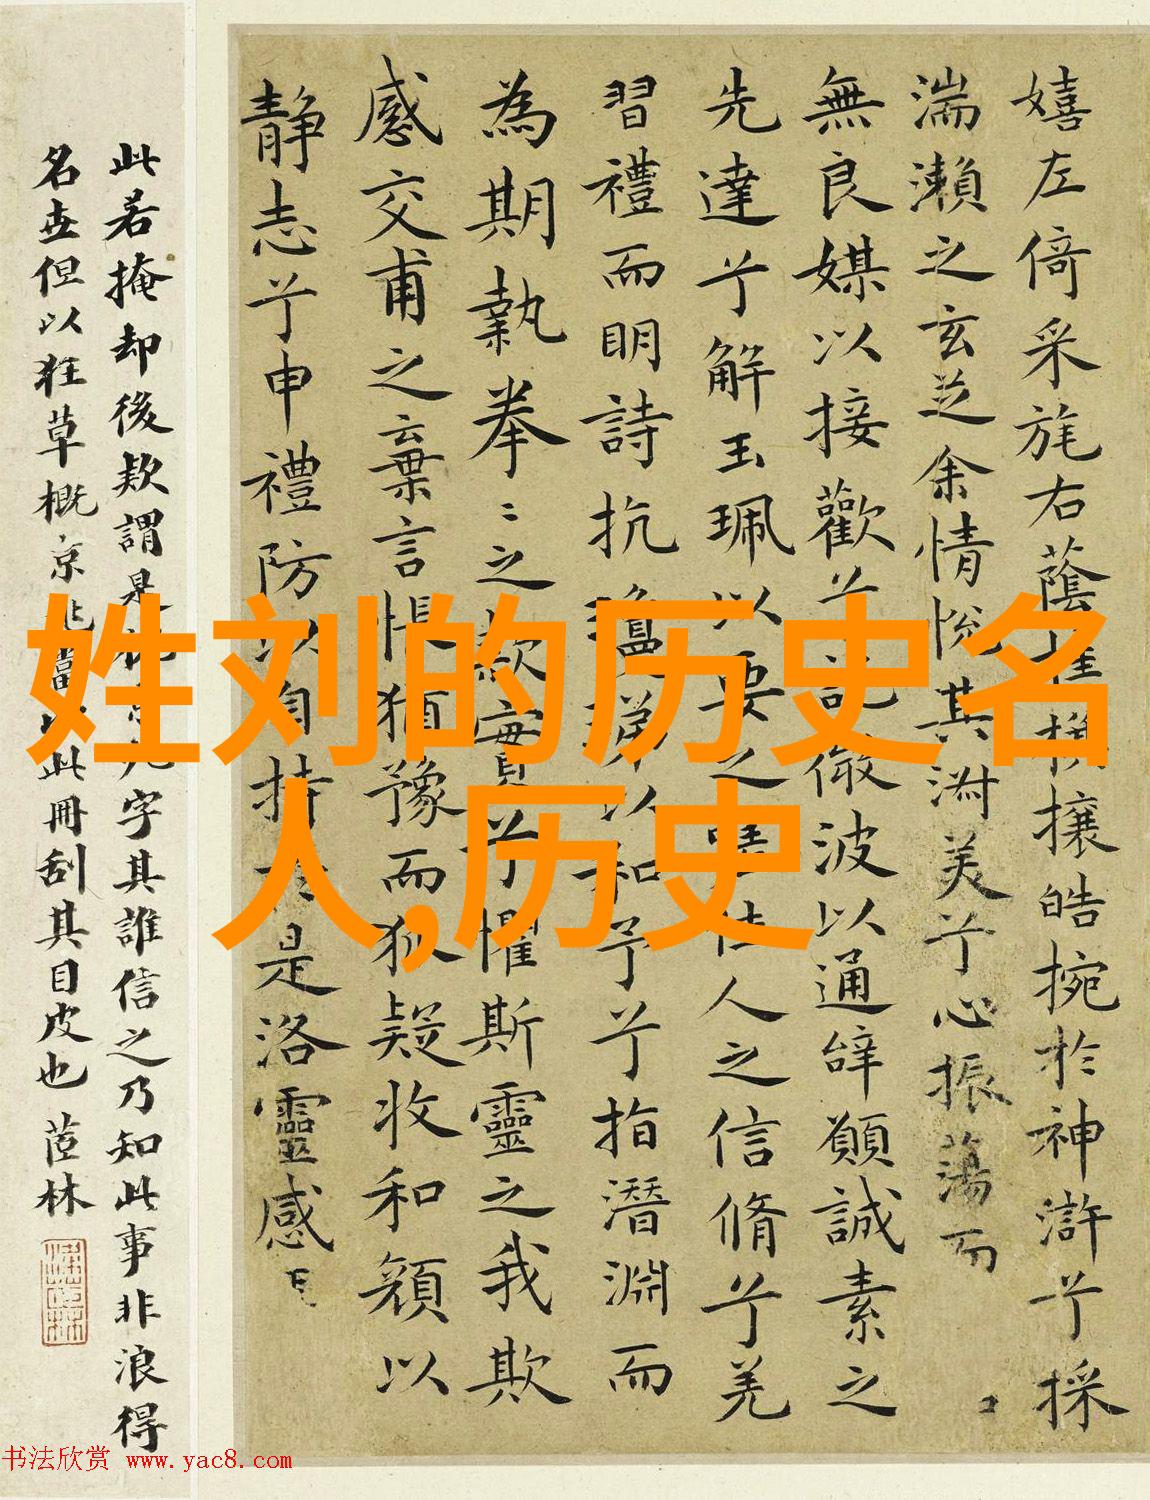 嬉左倚采旄右蔭桂旗攘皓捥於神滸兮採
湍瀨之玄芝余情悅其淑美兮心振蕩而
無良媒以接歡兮託微波以通辭願誠素之
先達兮解玉珮以要之嗟佳人之信脩兮羌
習禮而明詩抗瓊珶以和予兮指潛淵而
為期執拳〻之款實兮懼斯靈之我欺
感交甫之棄言悵猶豫而狐疑收和顏以
靜志兮申禮防以自持於是洛靈感
此若掩却後款謂是元字其誰信之乃知此事非浪得
名世但以狂草概京兆當此冊刮其目皮也 茝林
姓刘的历史名
人,历史
书法欣赏 www.yac8.com